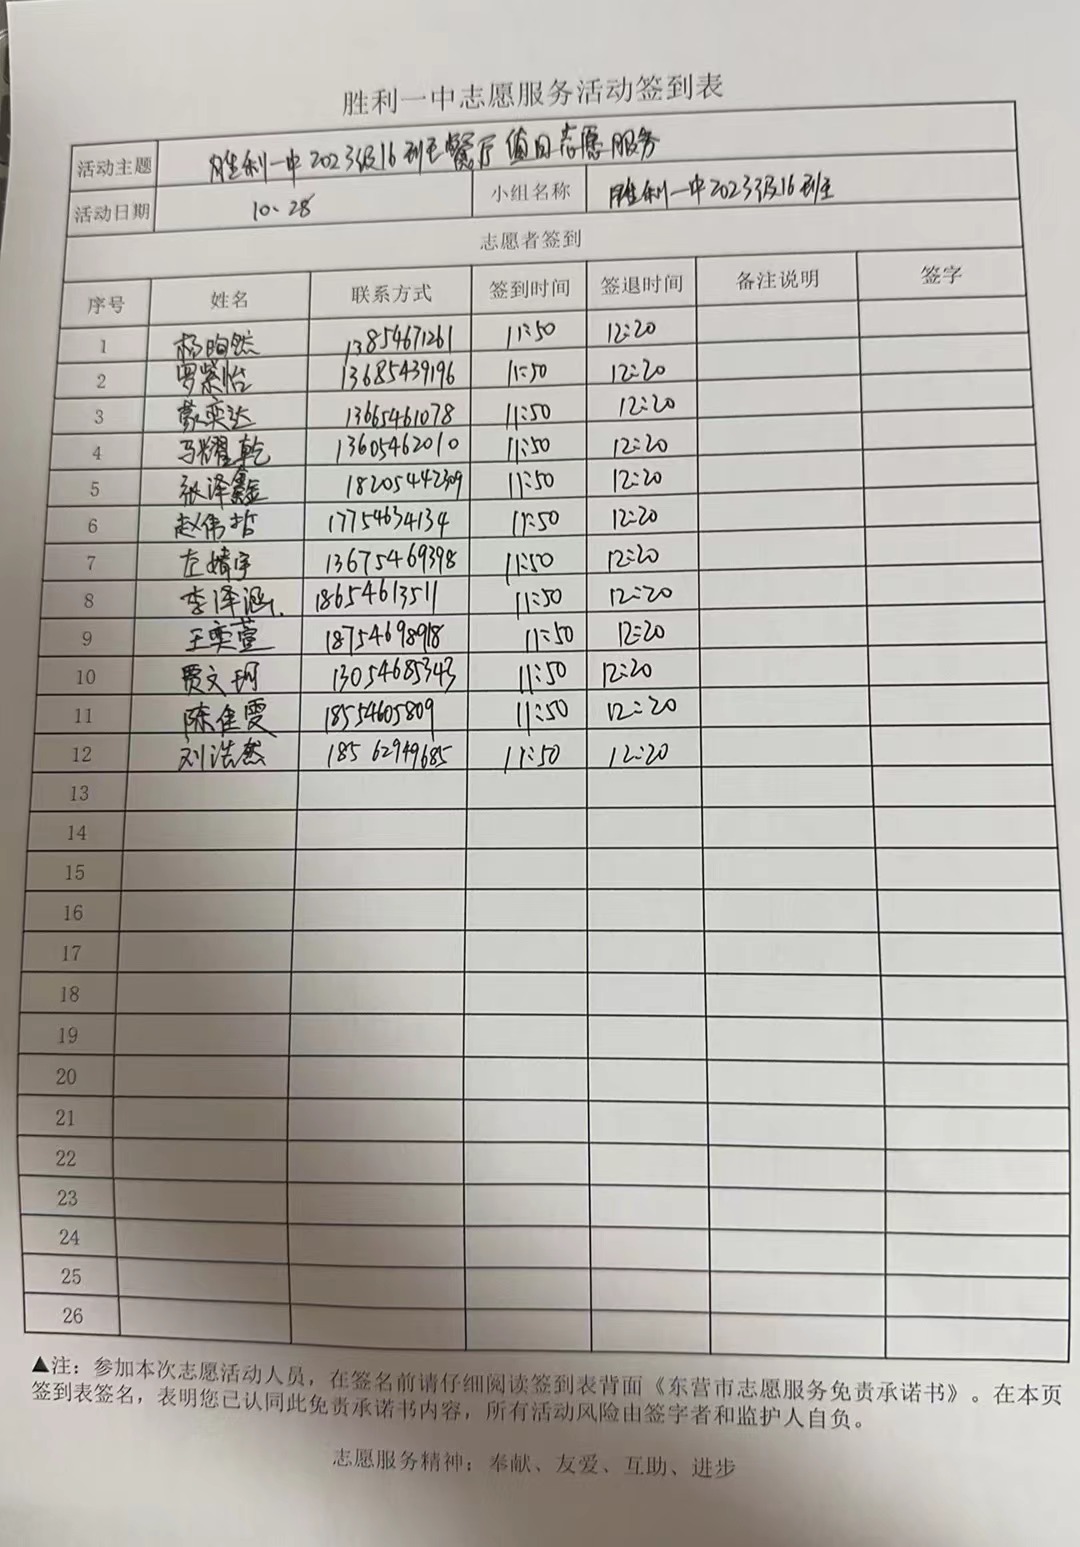 胜利一中志愿服务活动签到表
活动主题 胜利一中2023级16班主餐厅值日志愿服务
活动日期 10.28 小组名称 胜利一中2023级16班主
志愿者签到
序号 姓名 联系方式 签到时间 签退时间 备注说明 签字
1 杨昫然 13854671261 11:50 12:20
2 罗紫怡 13685439196 11:50 12:20
3 蒙奕达 13665461078 11:50 12:20
4 马耀乾 13605462010 11:50 12:20
5 张泽鑫 18205442309 11:50 12:20
6 赵伟哲 17754634134 11:50 12:20
7 左婧宇 13675469398 11:50 12:20
8 李泽涵 18654613511 11:50 12:20
9 王奕萱 18754698918 11:50 12:20
10 贾文珂 13054685343 11:50 12:20
11 陈佳雯 18554605809 11:50 12:20
12 刘浩然 18562949685 11:50 12:20
13
14
15
16
17
18
19
20
21
22
23
24
25
26
▲注：参加本次志愿活动人员，在签名前请仔细阅读签到表背面《东营市志愿服务免责承诺书》。在本页
签到表签名，表明您已认同此免责承诺书内容，所有活动风险由签字者和监护人自负。
志愿服务精神：奉献、友爱、互助、进步